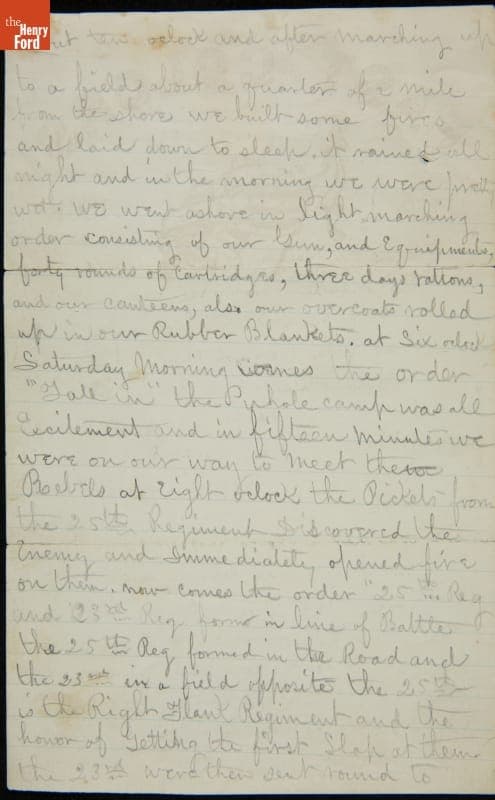 the
Henry
Ford
oclock and after marching up
to a field about a quarter of a mile
from the shore we built some fires
and laid down to sleep. it rained all
night and in the morning we were pretty
wet. we went ashore in light marching
order consisting of our Gun, and Equipments,
forty rounds of Cartridges, three days rations,
and our canteens, also our overcoats rolled
up in our Rubber Blankets. at Six oclock
Saturday Morning comes the order
"Fall in" the whole camp was all
Excitement and in fifteen minutes we
were on our way to meet the
Rebels at Eight oclock the Pickets from
the 25th Regiment Discovered the
Enemy and Immediately opened fire
on them. now comes the order "25th Reg
and 23rd Reg form in line of Battle
the 25th Reg formed in the Road and
the 23rd in a field opposite the 25th
is the Right Flank Regiment and the
honor of getting the first Slap at them
the 23rd were then sent round to